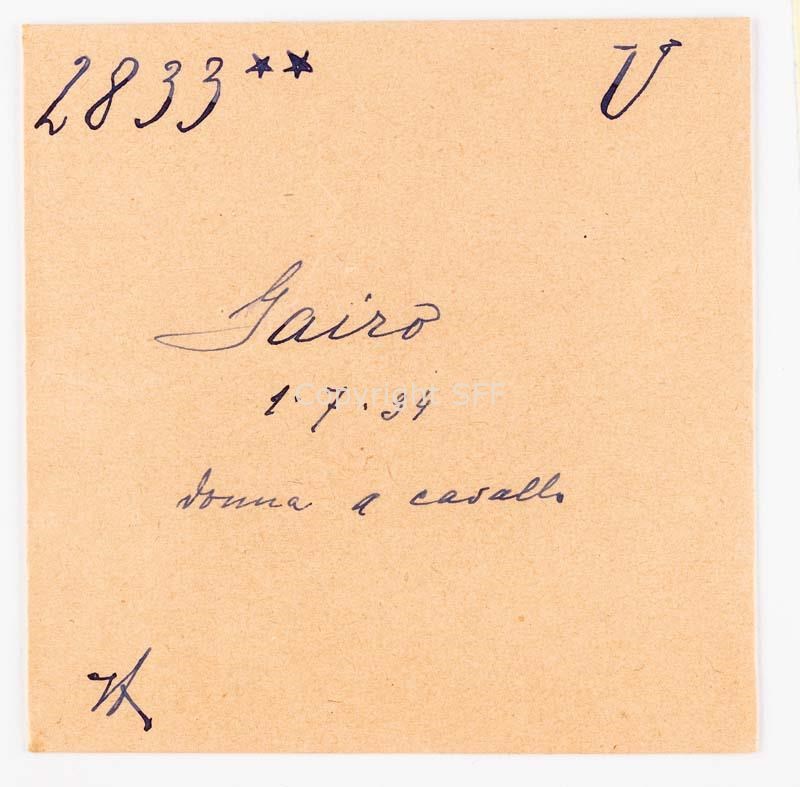 2833** U
Gairo
1.7.34
Copyright SFF
donna a cavallo